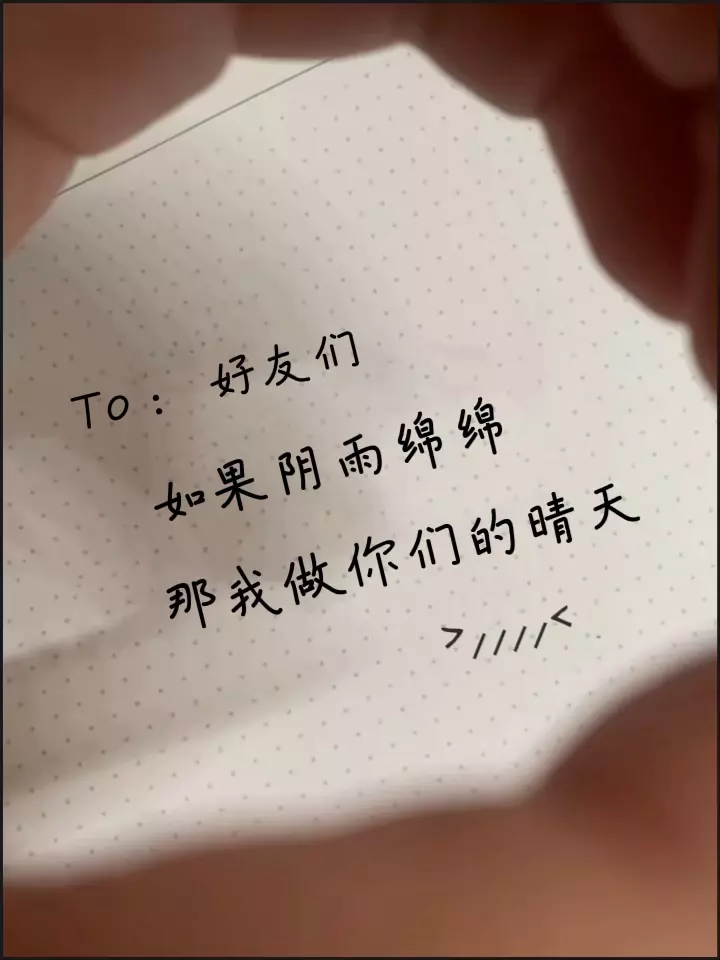 To： 好友们
如果阴雨绵绵
那我做你们的晴天
>////<